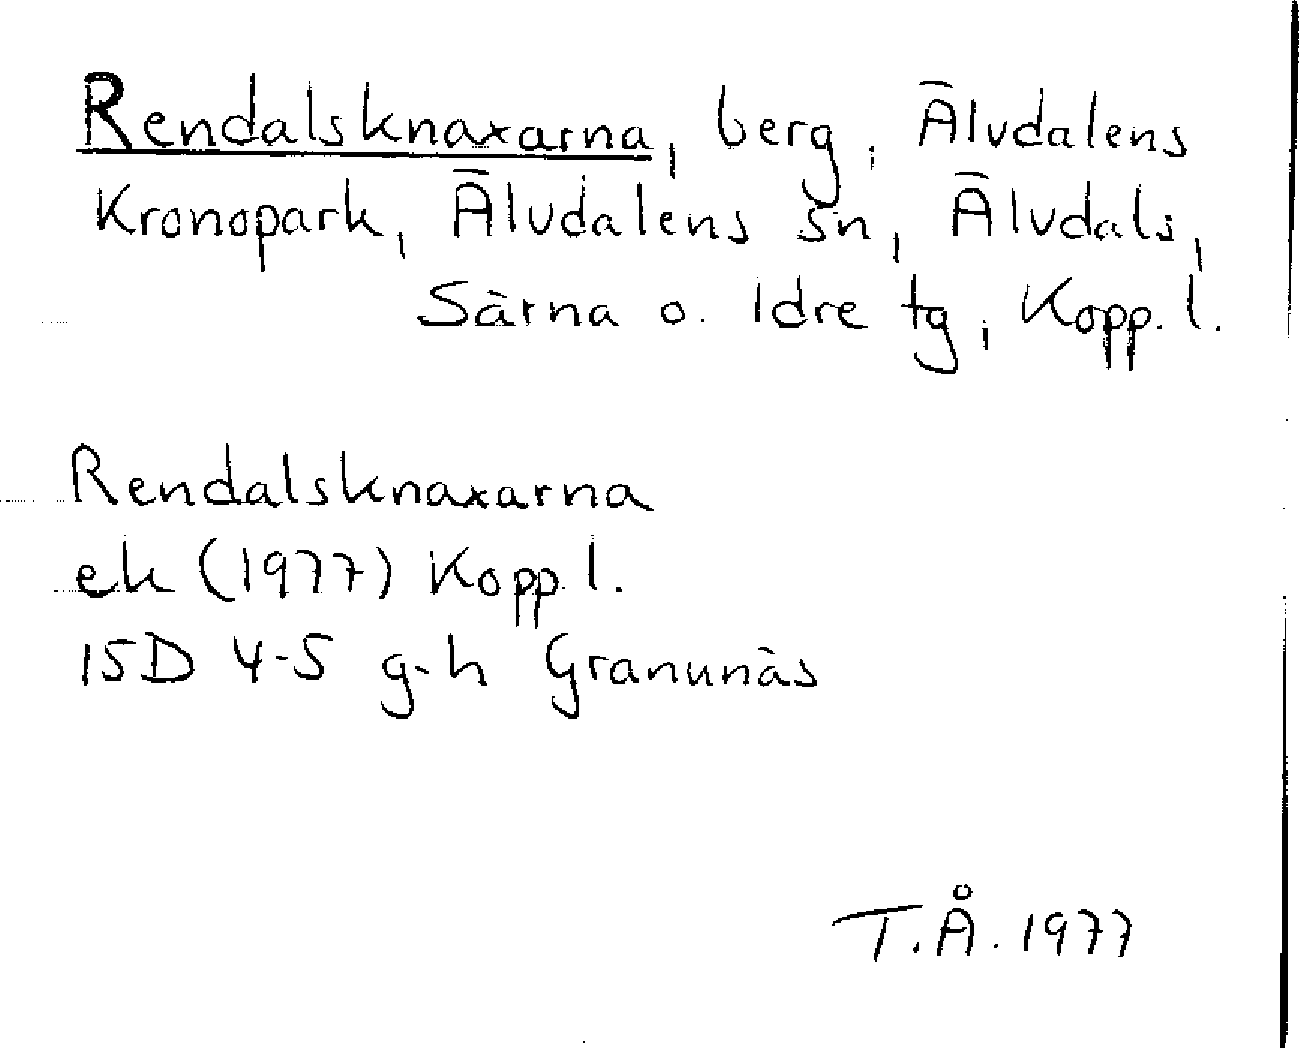 Rendalsknaxarna, berg, Älvdalens
Kronopark, Älvdalens sn, Älvdals,
Särna o. Idre tg, Kopp. l.
Rendalsknaxarna
ek (1977) Kopp. l.
15D 4-5 g-h Granunäs
T.Å. 1977